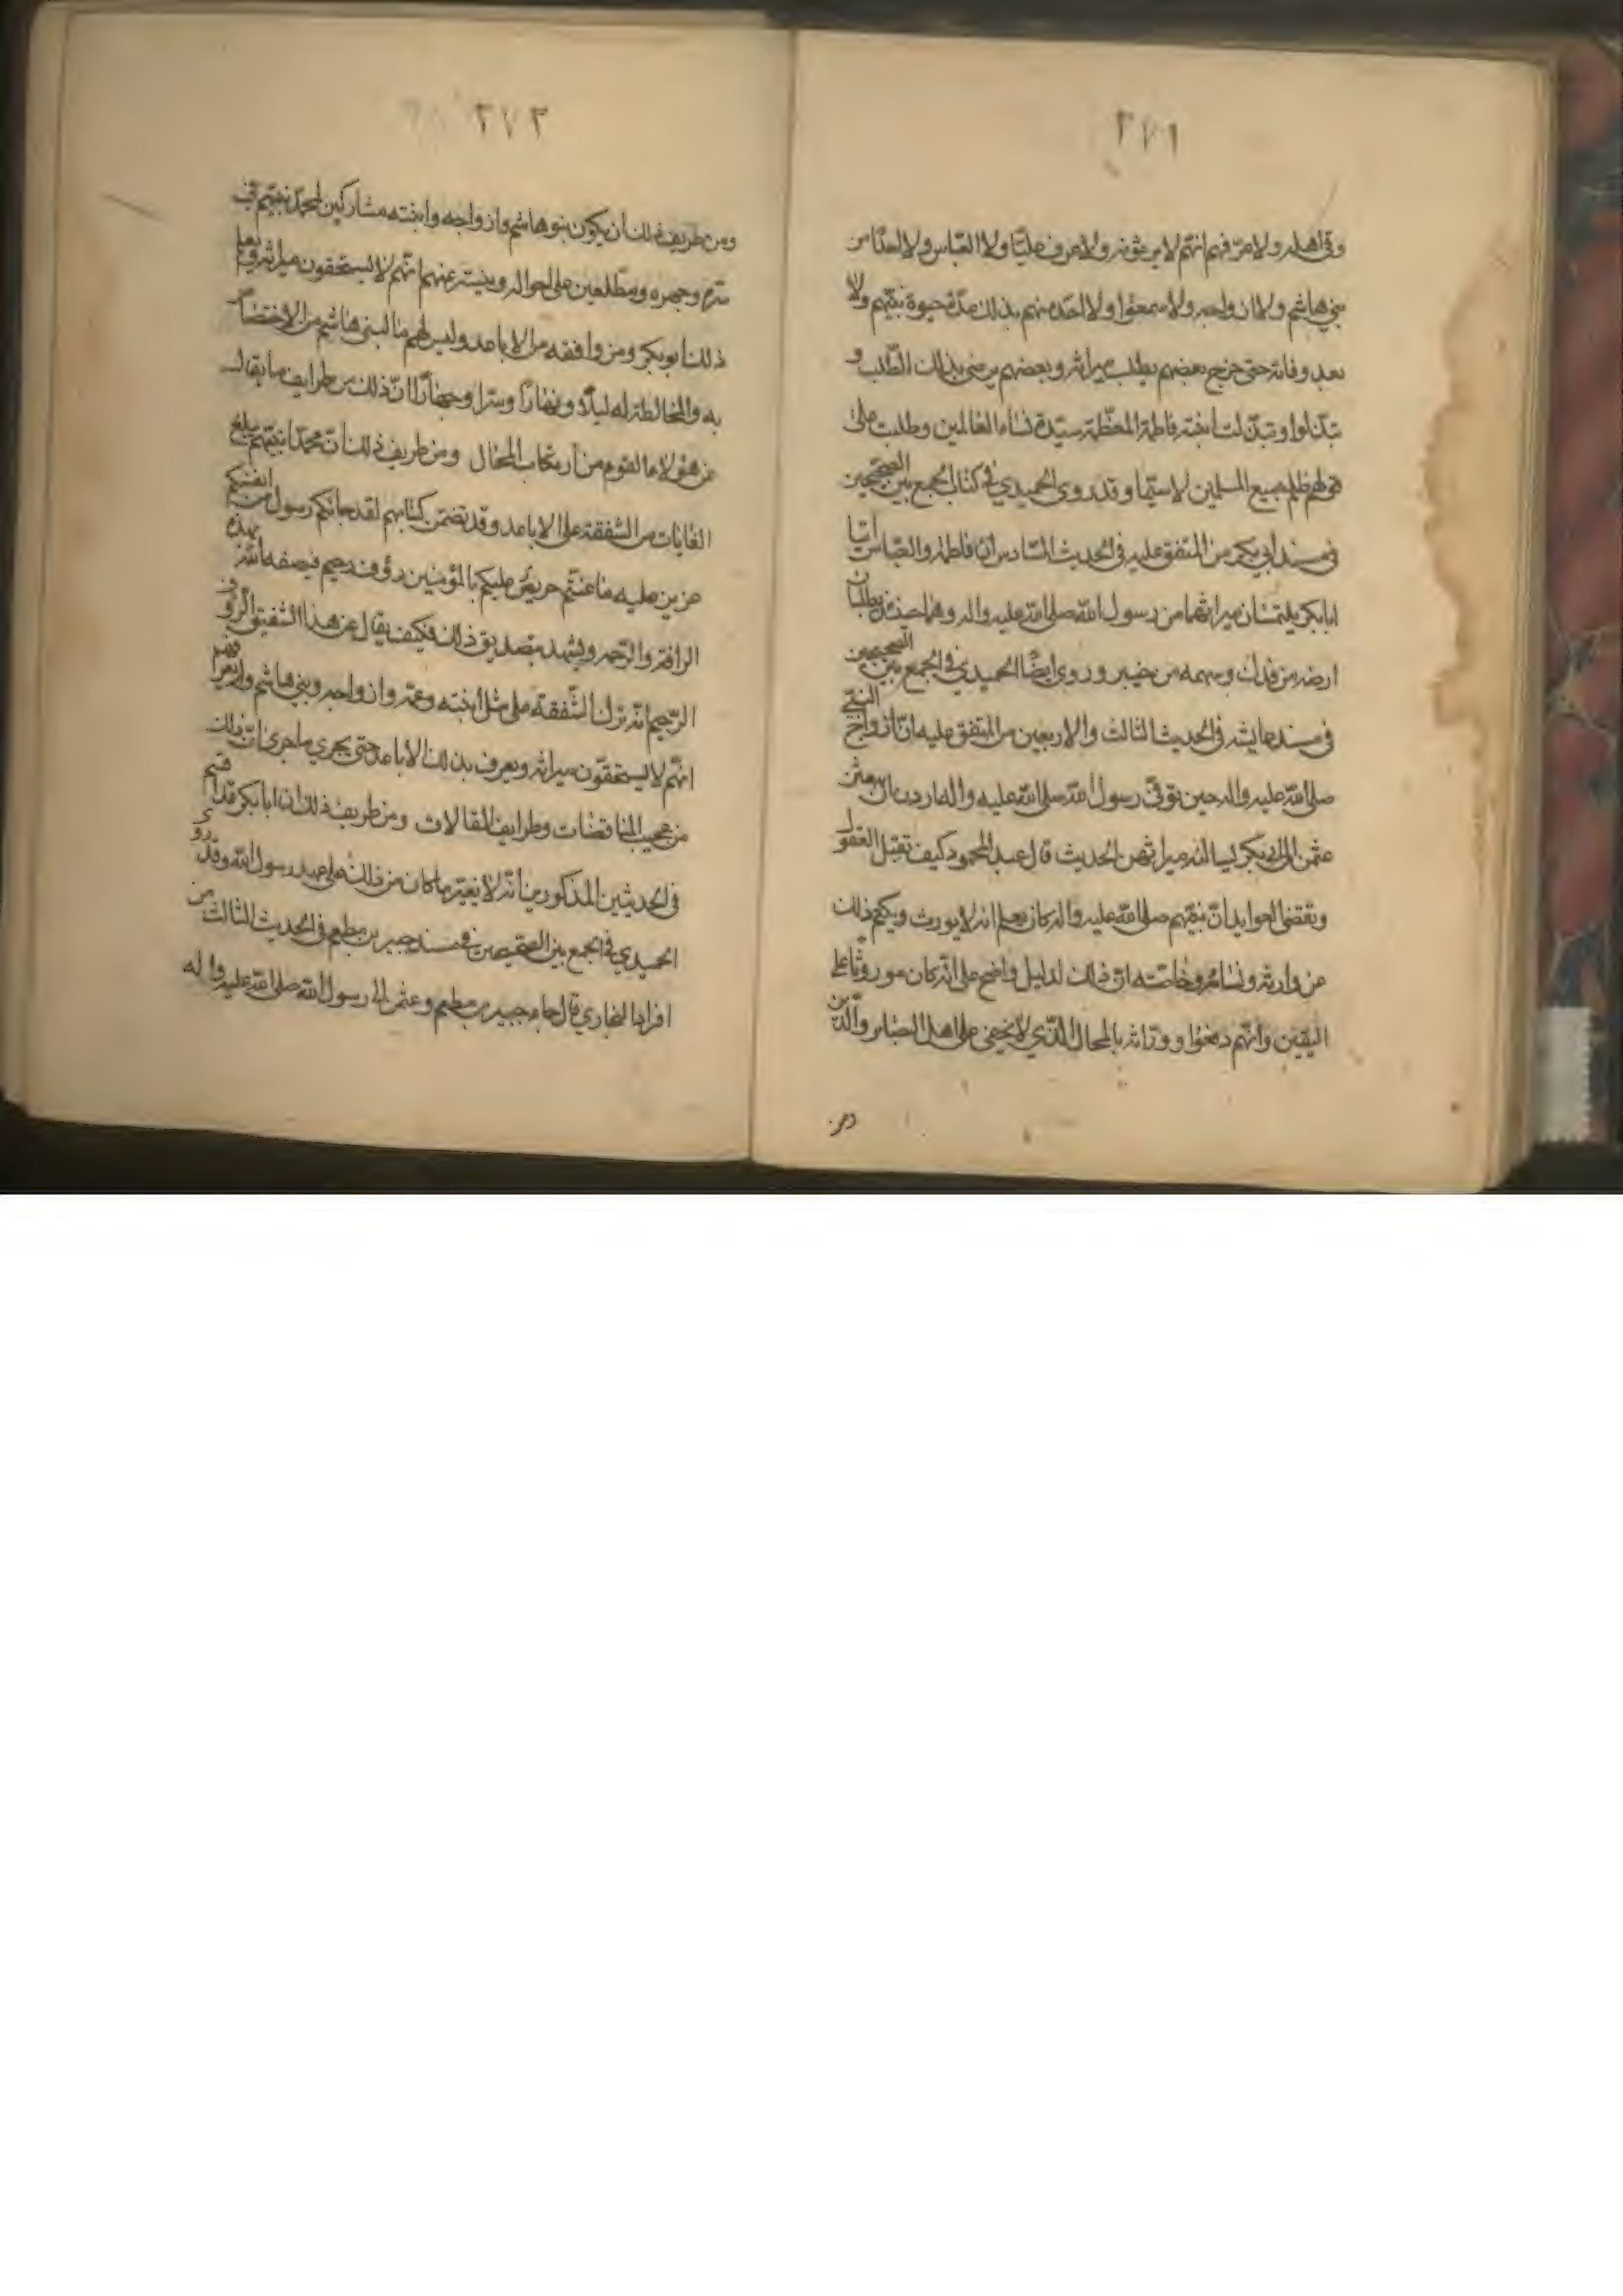 ٢٧١
وفى اهله ولا عرّفهم انهم لا يرثونه ولا عرف عليّا ولا العباس ولا احدا من
بني هاشم ولا ازواجه ولا سمعوا ولا احد منهم بذلك مدّة حيوة نبيّهم ولا
بعد وفاته حتى خرج بعضهم يطلب ميراثه وبعضهم يرضى بذلك الطّلب و
تبذّلوا وتبذّلت ابنته فاطمة المعظّمة سيّدة نساء العالمين وطلبت على
قولهم ظلم جميع المسلمين لا سيّما وقد روى الحميدي في كتاب الجمع بين الصحيحين
في مسند ابي بكر من المتفق عليه في الحديث السّادس انّ فاطمة والعبّاس اتيا
ابا بكر يلتمسان ميراثهما من رسول الله صلى الله عليه واله وهما حينئذ يطلبان
ارضه من فدك وسهمه من خيبر وروى ايضًا الحميدي في الجمع بين الصحيحين
في مسند عايشه في الحديث الثالث والاربعين من المتفق عليه انّ ازواج النبّي
صلى الله عليه واله حين توفّي رسول الله صلى الله عليه واله اردن ان يبعثن
عثمن الى ابي بكر يسالنه ميراثهن الحديث قال عبد المحمود كيف تقبل العقول
وتقضى العوايد انّ نبيّهم صلى الله عليه واله كان يعلم انه لا يورث ويكتم ذلك
عن وارثه ونسائه وخاصّته انّ ذلك لدليل واضح على انّه كان موروثًا على
اليقين وانّهم دفعوا ورّاثه بالمحال الّذي لا يخفى على اهل البصاير والدّين
ومن
٢٧٢
ومن طريف ذلك ان يكون بنو هاشم وازواجه وابنته مشاركين لمحمّد نبيّهم في
سّره وجهره ومطّلعين على احواله ويستر عنهم انّهم لا يستحقون ميراثه ويعلم
ذلك ابو بكر ومن وافقه من الاباعد وليس لهم ما لبني هاشم من الاختصاص
به والمخالطة له ليلاً ونهارًا وسّرا وجهارًا انّ ذلك من طرايف ما يقال
عن هؤلاء القوم من ارتكاب المحال ومن طريف ذلك انّ محمّدا نبيّهم بلغ
الغايات من الشّفقة على الاباعد وقد تضمّن كتابهم لقد جائكم رسول من انفسكم
عزيز عليه ما عنتّم حريصٌ عليكم بالمؤمنين رؤف رحيم فيصفه الله بهذه
الرافة والرّحمه ويشهد بتصديق ذلك فكيف يقال عن هذا الشّفيق الرّؤف
الرّحيم انّه ترك الشّفقة على مثل ابنته وعمّه وازواجه وبني هاشم ولم يعرّفهم
انّهم لا يستحقّون ميراثه ويعرف بذلك الاباعد حتى يجري ما جرى انّ ذلك
من عجيب المناقضات وطرايف المقالات ومن طريف ذلك انّ ابا بكر قد اقسم
في الحديثين المذكورين انّه لا يغيّر ما كان من ذلك على عهد رسول الله وقد روى
الحميدي في الجمع بين الصّحيحين في مسند جبير بن مطعم في الحديث الثالث من
افراد البخاري قال جاء جبير بن مطعم وعثمن الى رسول الله صلى الله عليه واله